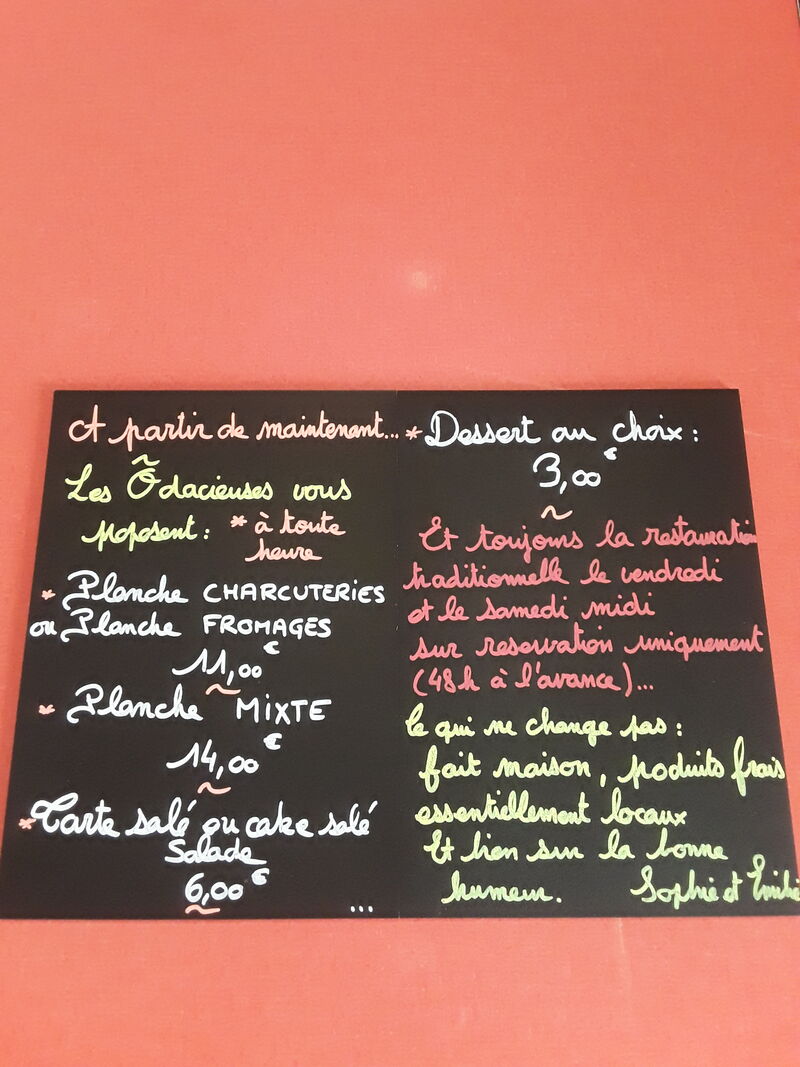 A partir de maintenant...
Les Ôdacieuses vous
poposent : * à toute
heure
* Planche CHARCUTERIES
ou Planche FROMAGES
11,00€
~
* Planche MIXTE
14,00€
~
* Tarte salé ou cake salé
Salade
6,00€
~
...
* Dessert au choix :
3,00€
~
Et toujours la restauration
traditionnelle le vendredi
et le samedi midi
sur reservation uniquement
(48h à l'avance)...
Ce qui ne change pas :
fait maison, poduits frais
essentiellement locaux
Et bien sur la bonne
humeur. Sophie et Emilie